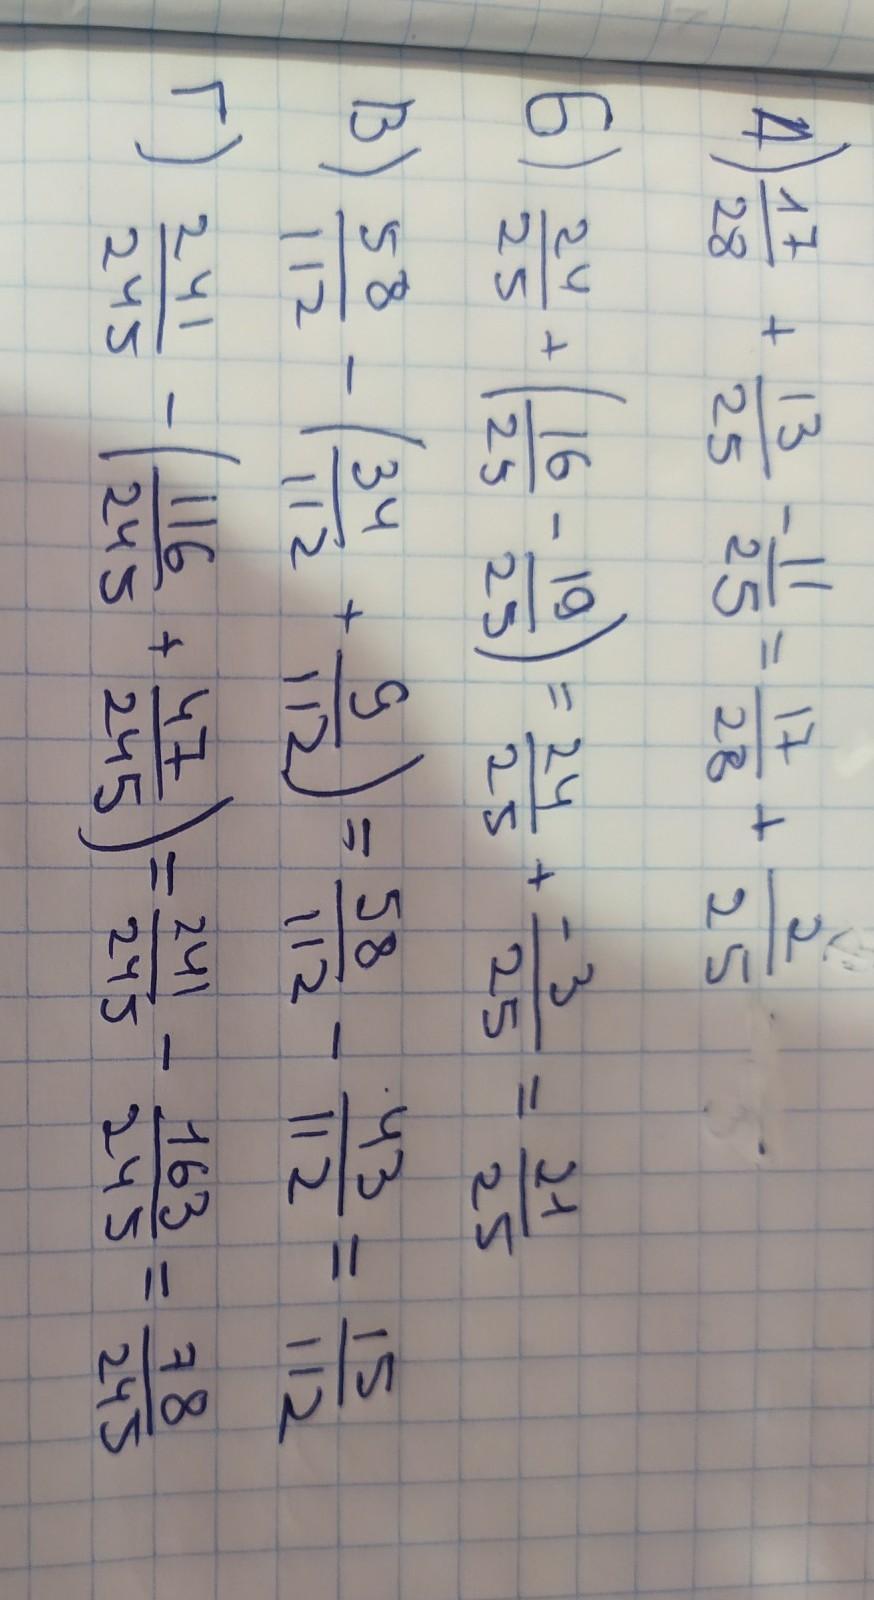 А) 17/28 + 13/25 - 11/25 = 17/28 + 2/25
Б) 24/25 + (16/25 - 19/25) = 24/25 + -3/25 = 21/25
В) 58/112 - (34/112 + 9/112) = 58/112 - 43/112 = 15/112
Г) 241/245 - (116/245 + 47/245) = 241/245 - 163/245 = 78/245